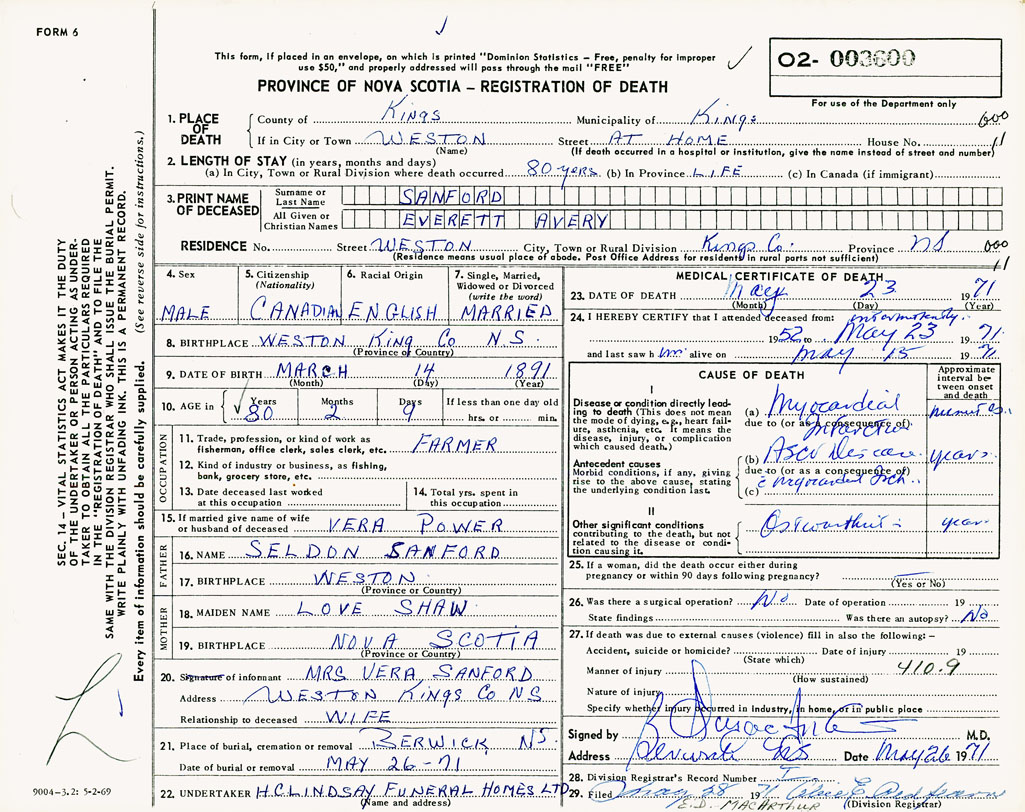 FORM 6
This form, if placed in an envelope, on which is printed "Dominion Statistics – Free, penalty for improper
use $50," and properly addressed will pass through the mail "FREE"
02- 003600
For use of the Department only
PROVINCE OF NOVA SCOTIA – REGISTRATION OF DEATH
1. PLACE OF DEATH
County of Kings Municipality of Kings 600
If in City or Town WESTON Street AT HOME House No. 11
(Name) (If death occurred in a hospital or institution, give the name instead of street and number)
2. LENGTH OF STAY (in years, months and days)
(a) In City, Town or Rural Division where death occurred 80 yers (b) In Province LIFE (c) In Canada (if immigrant)
3. PRINT NAME OF DECEASED
Surname or Last Name SANFORD
All Given or Christian Names EVERETT AVERY
RESIDENCE No. Street WESTON City, Town or Rural Division Kings Co. Province NS 600
(Residence means usual place of abode. Post Office Address for residents in rural parts not sufficient) 11
4. Sex
MALE
5. Citizenship
(Nationality)
CANADIAN
6. Racial Origin
ENGLISH
7. Single, Married,
Widowed or Divorced
(write the word)
MARRIED
8. BIRTHPLACE WESTON King Co N S.
(Province or Country)
9. DATE OF BIRTH MARCH 14 1891
(Month) (Day) (Year)
10. AGE in
Years Months Days If less than one day old
80 2 9 hrs. or min.
OCCUPATION
11. Trade, profession, or kind of work as
fisherman, office clerk, sales clerk, etc. FARMER
12. Kind of industry or business, as fishing,
bank, grocery store, etc.
13. Date deceased last worked
at this occupation
14. Total yrs. spent in
this occupation
15. If married give name of wife
or husband of deceased VERA POWER
FATHER
16. NAME SELDON SANFORD
17. BIRTHPLACE WESTON
(Province or Country)
MOTHER
18. MAIDEN NAME LOVE SHAW
19. BIRTHPLACE NOVA SCOTIA
(Province or Country)
20. Signature of informant MRS VERA SANFORD
Address WESTON KINGS CO NS
Relationship to deceased WIFE
21. Place of burial, cremation or removal BERWICK NS.
Date of burial or removal MAY 26-71
22. UNDERTAKER H.C. LINDSAY FUNERAL HOMES LTD
(Name and address)
MEDICAL CERTIFICATE OF DEATH
23. DATE OF DEATH May 23 1971
(Month) (Day) (Year)
24. I HEREBY CERTIFY that I attended deceased from: intermittently
1952 to May 23 1971
and last saw him alive on May 15 1971
CAUSE OF DEATH
Approximate
interval be-
tween onset
and death
I
Disease or condition directly lead-
ing to death (This does not mean
the mode of dying, e.g., heart fail-
ure, asthenia, etc. It means the
disease, injury, or complication
which caused death.)
(a) Myocardial
due to (or as a consequence of)
Infarction
minutes
Antecedent causes
Morbid conditions, if any, giving
rise to the above cause, stating
the underlying condition last.
(b) ASCV Disease years
due to (or as a consequence of)
(c) myocardial Isch.
II
Other significant conditions
contributing to the death, but not
related to the disease or condi-
tion causing it.
Osteoarthritis years
25. If a woman, did the death occur either during
pregnancy or within 90 days following pregnancy?
(Yes or No)
26. Was there a surgical operation? No Date of operation 19
State findings Was there an autopsy? No
27. If death was due to external causes (violence) fill in also the following: –
Accident, suicide or homicide? Date of injury 19
(State which)
Manner of injury 410.9
(How sustained)
Nature of injury
Specify whether injury occurred in industry, in home, or in public place
Signed by M.D.
Address Date May 26 1971
28. Division Registrar's Record Number
29. Filed May 28 1971
E.D. MACARTHUR (Division Registrar)
SEC. 14 – VITAL STATISTICS ACT MAKES IT THE DUTY
OF THE UNDERTAKER OR PERSON ACTING AS UNDER-
TAKER TO OBTAIN ALL THE PARTICULARS REQUIRED
IN THE "REGISTRATION OF DEATH" AND TO FILE THE
SAME WITH THE DIVISION REGISTRAR WHO SHALL ISSUE THE BURIAL PERMIT.
WRITE PLAINLY WITH UNFADING INK. THIS IS A PERMANENT RECORD.
Every item of information should be carefully supplied. (See reverse side for instructions.)
9004-3.2: 5-2-69